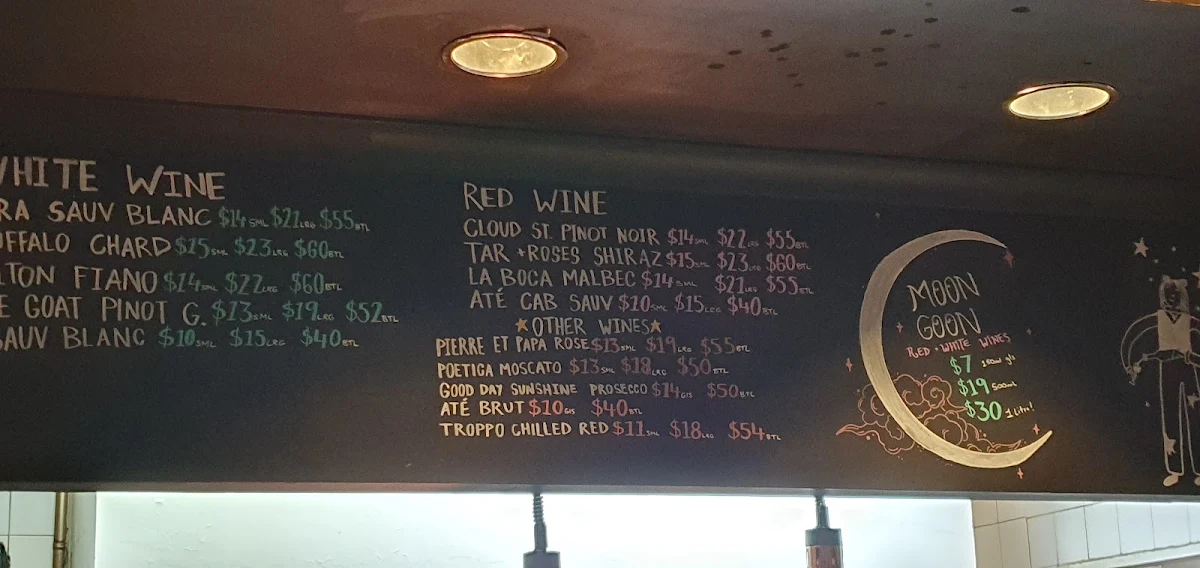 WHITE WINE
RA SAUV BLANC $14 SML $21 LRG $55 BTL
FFALO CHARD $15 SML $23 LRG $60 BTL
LTON FIANO $14 SML $22 LRG $60 BTL
E GOAT PINOT G. $13 SML $19 LRG $52 BTL
SAUV BLANC $10 SML $15 LRG $40 BTL
RED WINE
CLOUD ST. PINOT NOIR $14 SML $22 LRG $55 BTL
TAR + ROSES SHIRAZ $15 SML $23 LRG $60 BTL
LA BOCA MALBEC $14 SML $21 LRG $55 BTL
ATÉ CAB SAUV $10 SML $15 LRG $40 BTL
OTHER WINES
PIERRE ET PAPA ROSE $13 SML $19 LRG $55 BTL
POETICA MOSCATO $13 SML $18 LRG $50 BTL
GOOD DAY SUNSHINE PROSECCO $14 GLS $50 BTL
ATÉ BRUT $10 GLS $40 BTL
TROPPO CHILLED RED $11 SML $18 LRG $54 BTL
MOON
GOON
RED + WHITE WINES
$7 150ml g's
$19 500ml
$30 1 Litre!